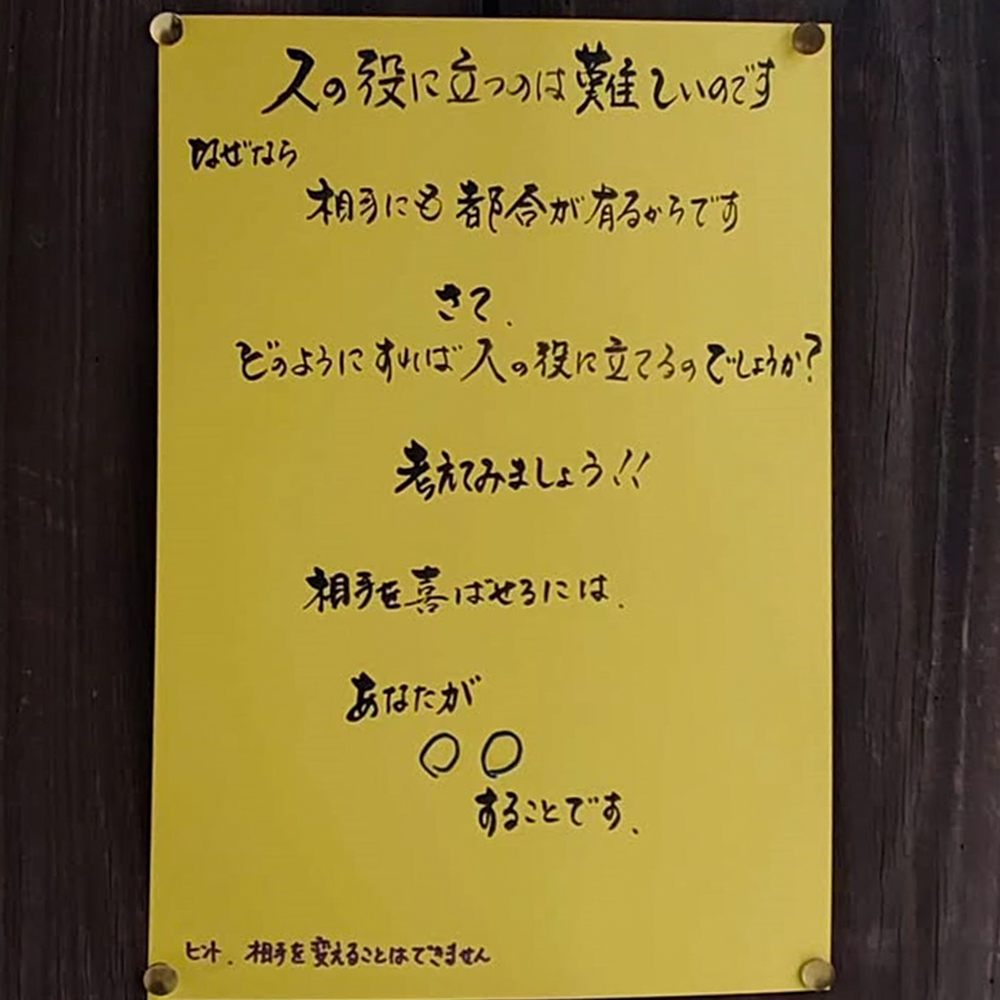 人の役に立つのは難しいのです
なぜなら
相手にも都合が有るからです
さて、
どのようにすれば人の役に立てるのでしょうか?
考えてみましょう!!
相手を喜ばせるには、
あなたが
○○
することです、
ヒント、相手を変えることはできません